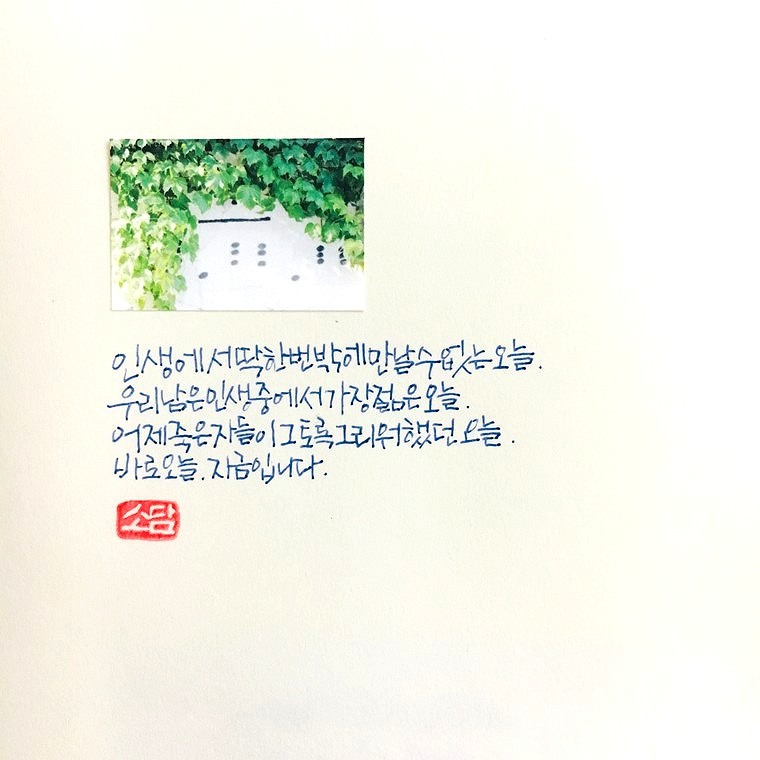 인생에서 딱 한번밖에 만날 수 없는 오늘.
우리 남은 인생 중에서 가장 젊은 오늘.
어제 죽은 자들이 그토록 그리워했던 오늘.
바로 오늘. 지금입니다.
소담